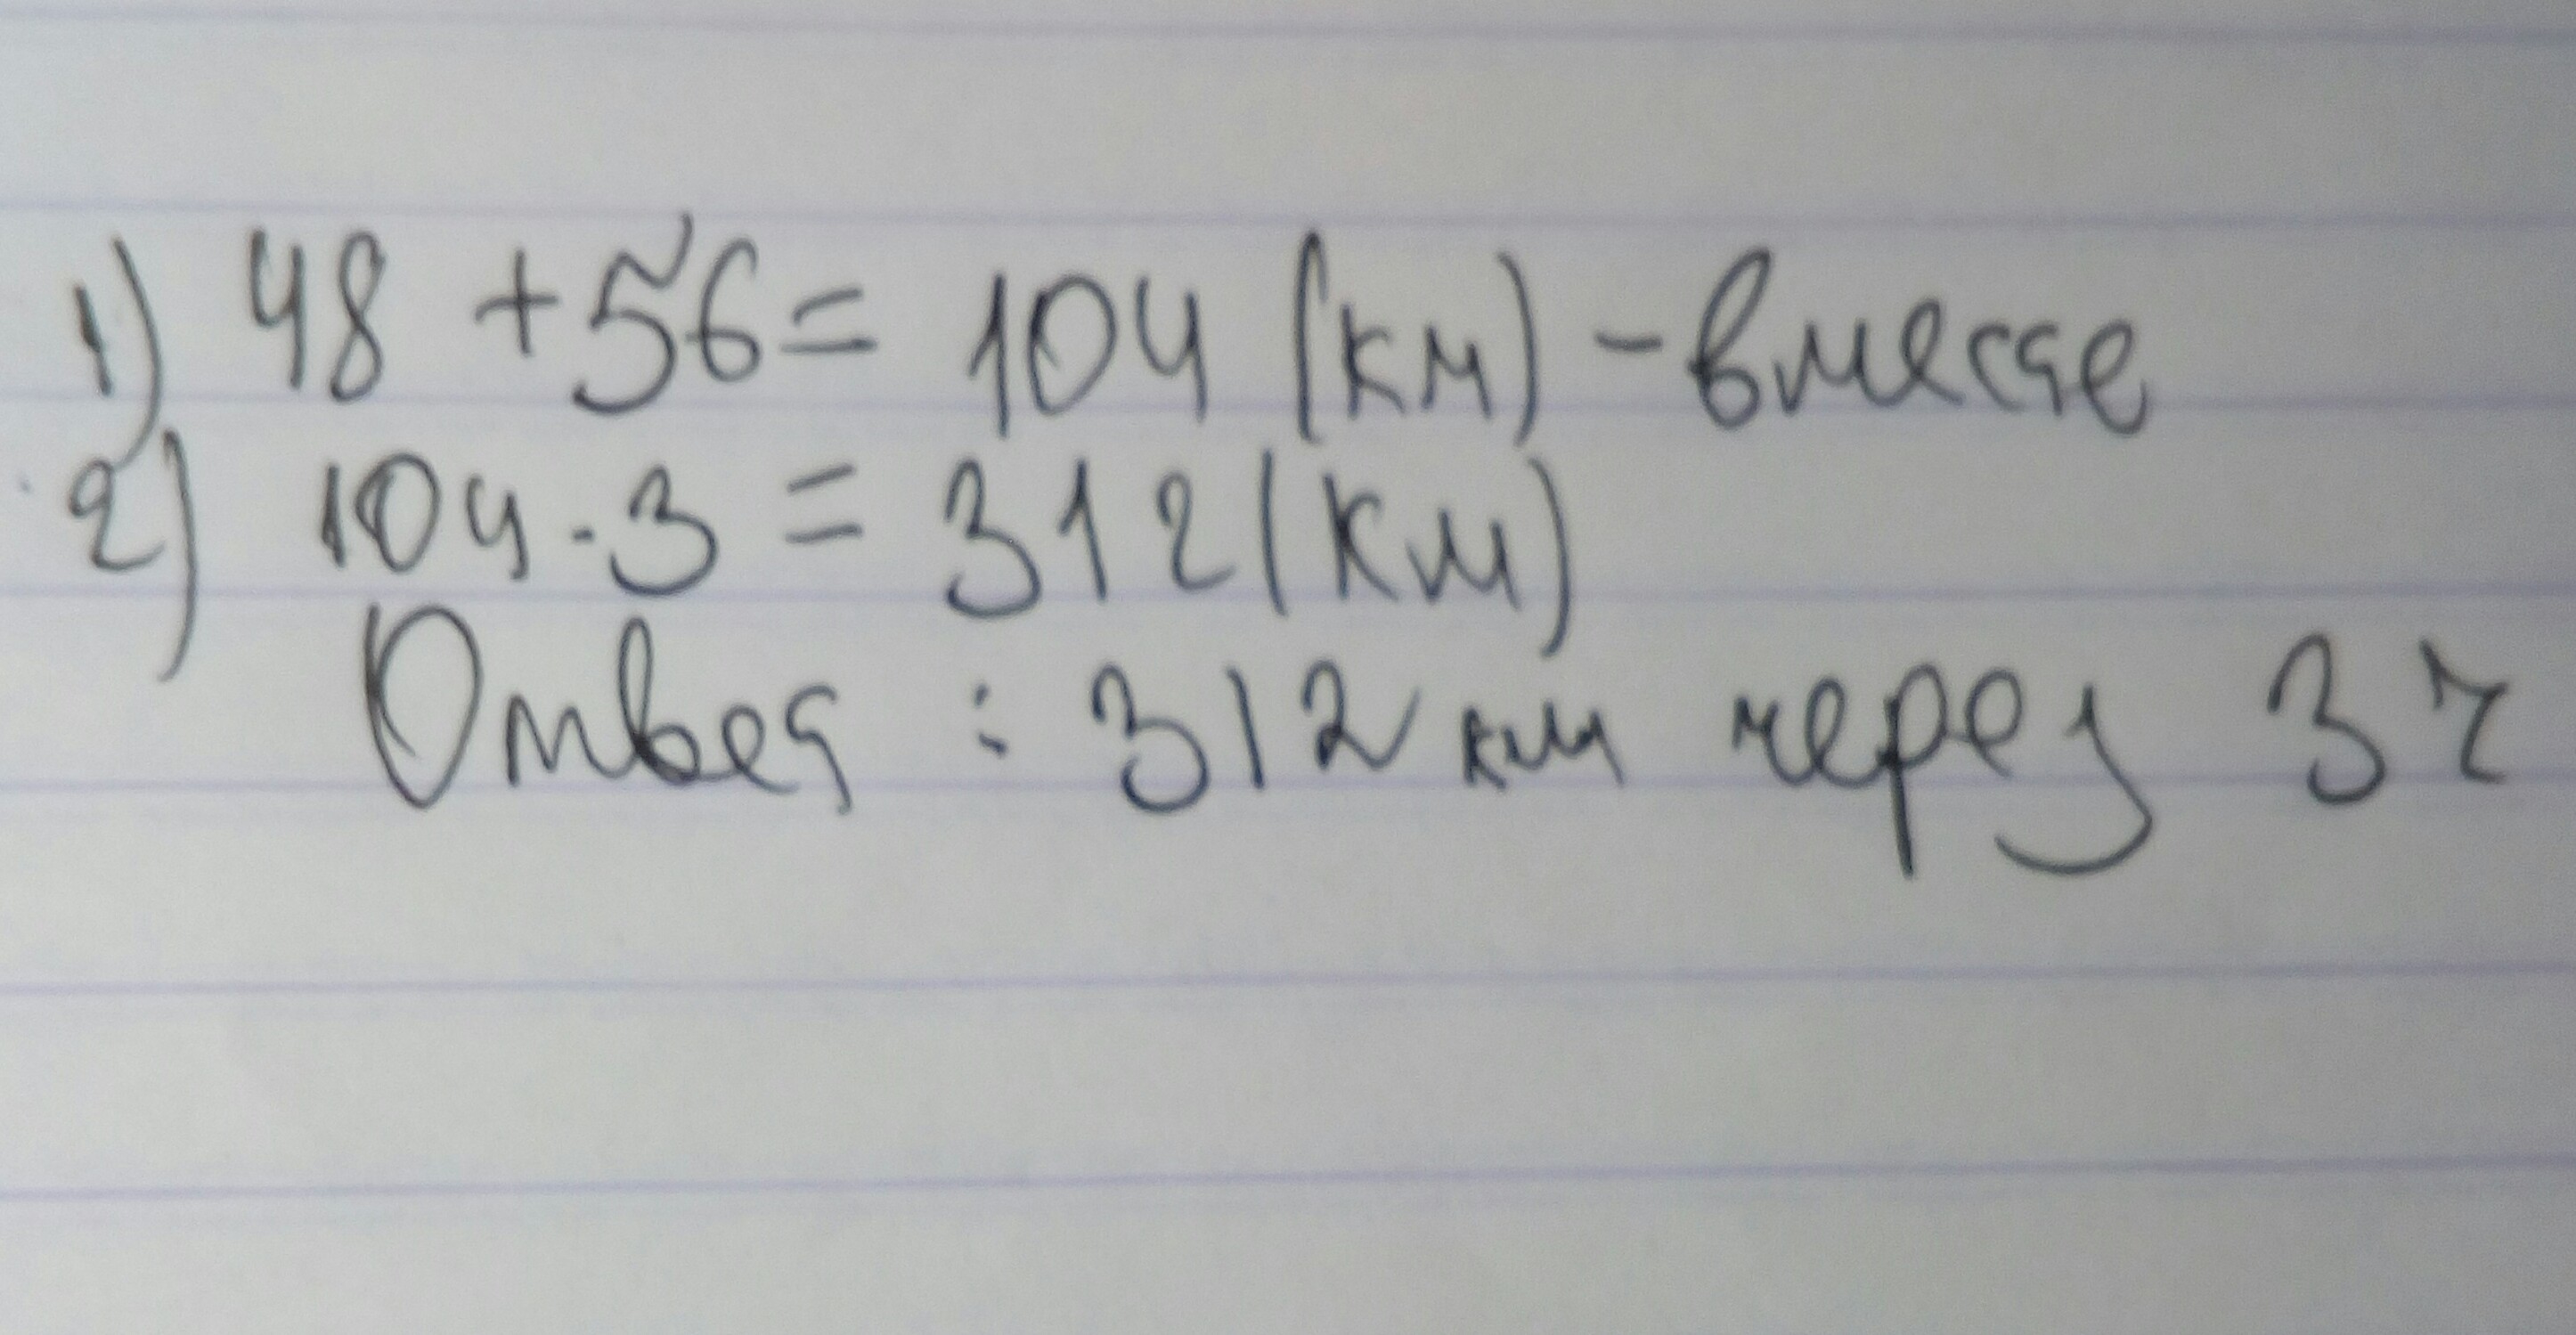 1) 48 + 56 = 104 (км) - вместе
2) 104 · 3 = 312 (км)
Ответ : 312 км через 3 ч